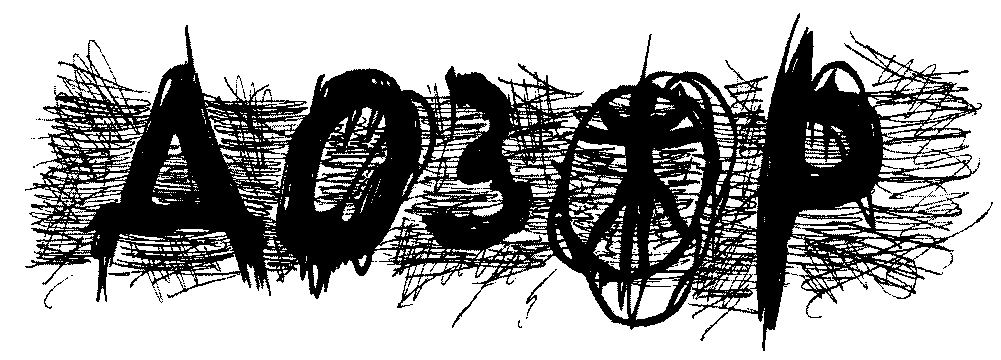 ДОЗОР